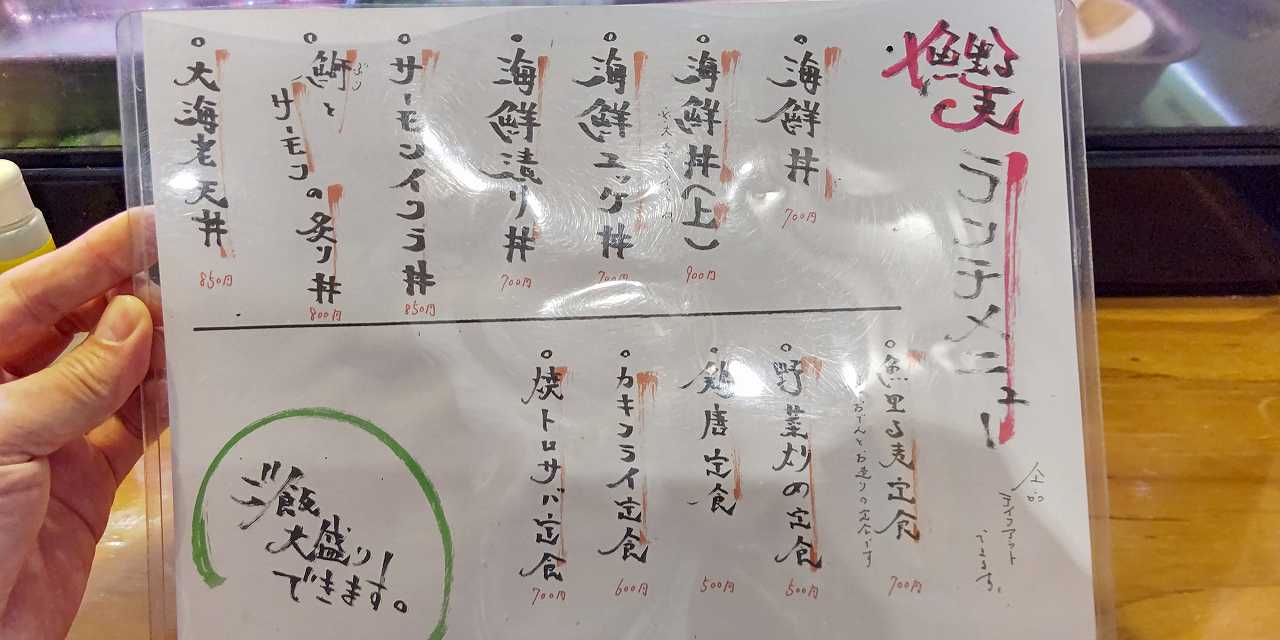 魚里る麦
ランチメニュー
全品
テイクアウト
できます。
海鮮丼
700円
海鮮丼(上)
900円
海鮮ユッケ丼
700円
海鮮漬け丼
700円
サーモンイクラ丼
850円
鰤と
ぶり
サーモンの炙り丼
800円
大海老天丼
850円
魚里る麦定食
おでんとお造りの定食です
700円
野菜炒めの定食
500円
鶏唐定食
500円
カキフライ定食
600円
焼トロサバ定食
700円
ご飯
大盛り
できます。